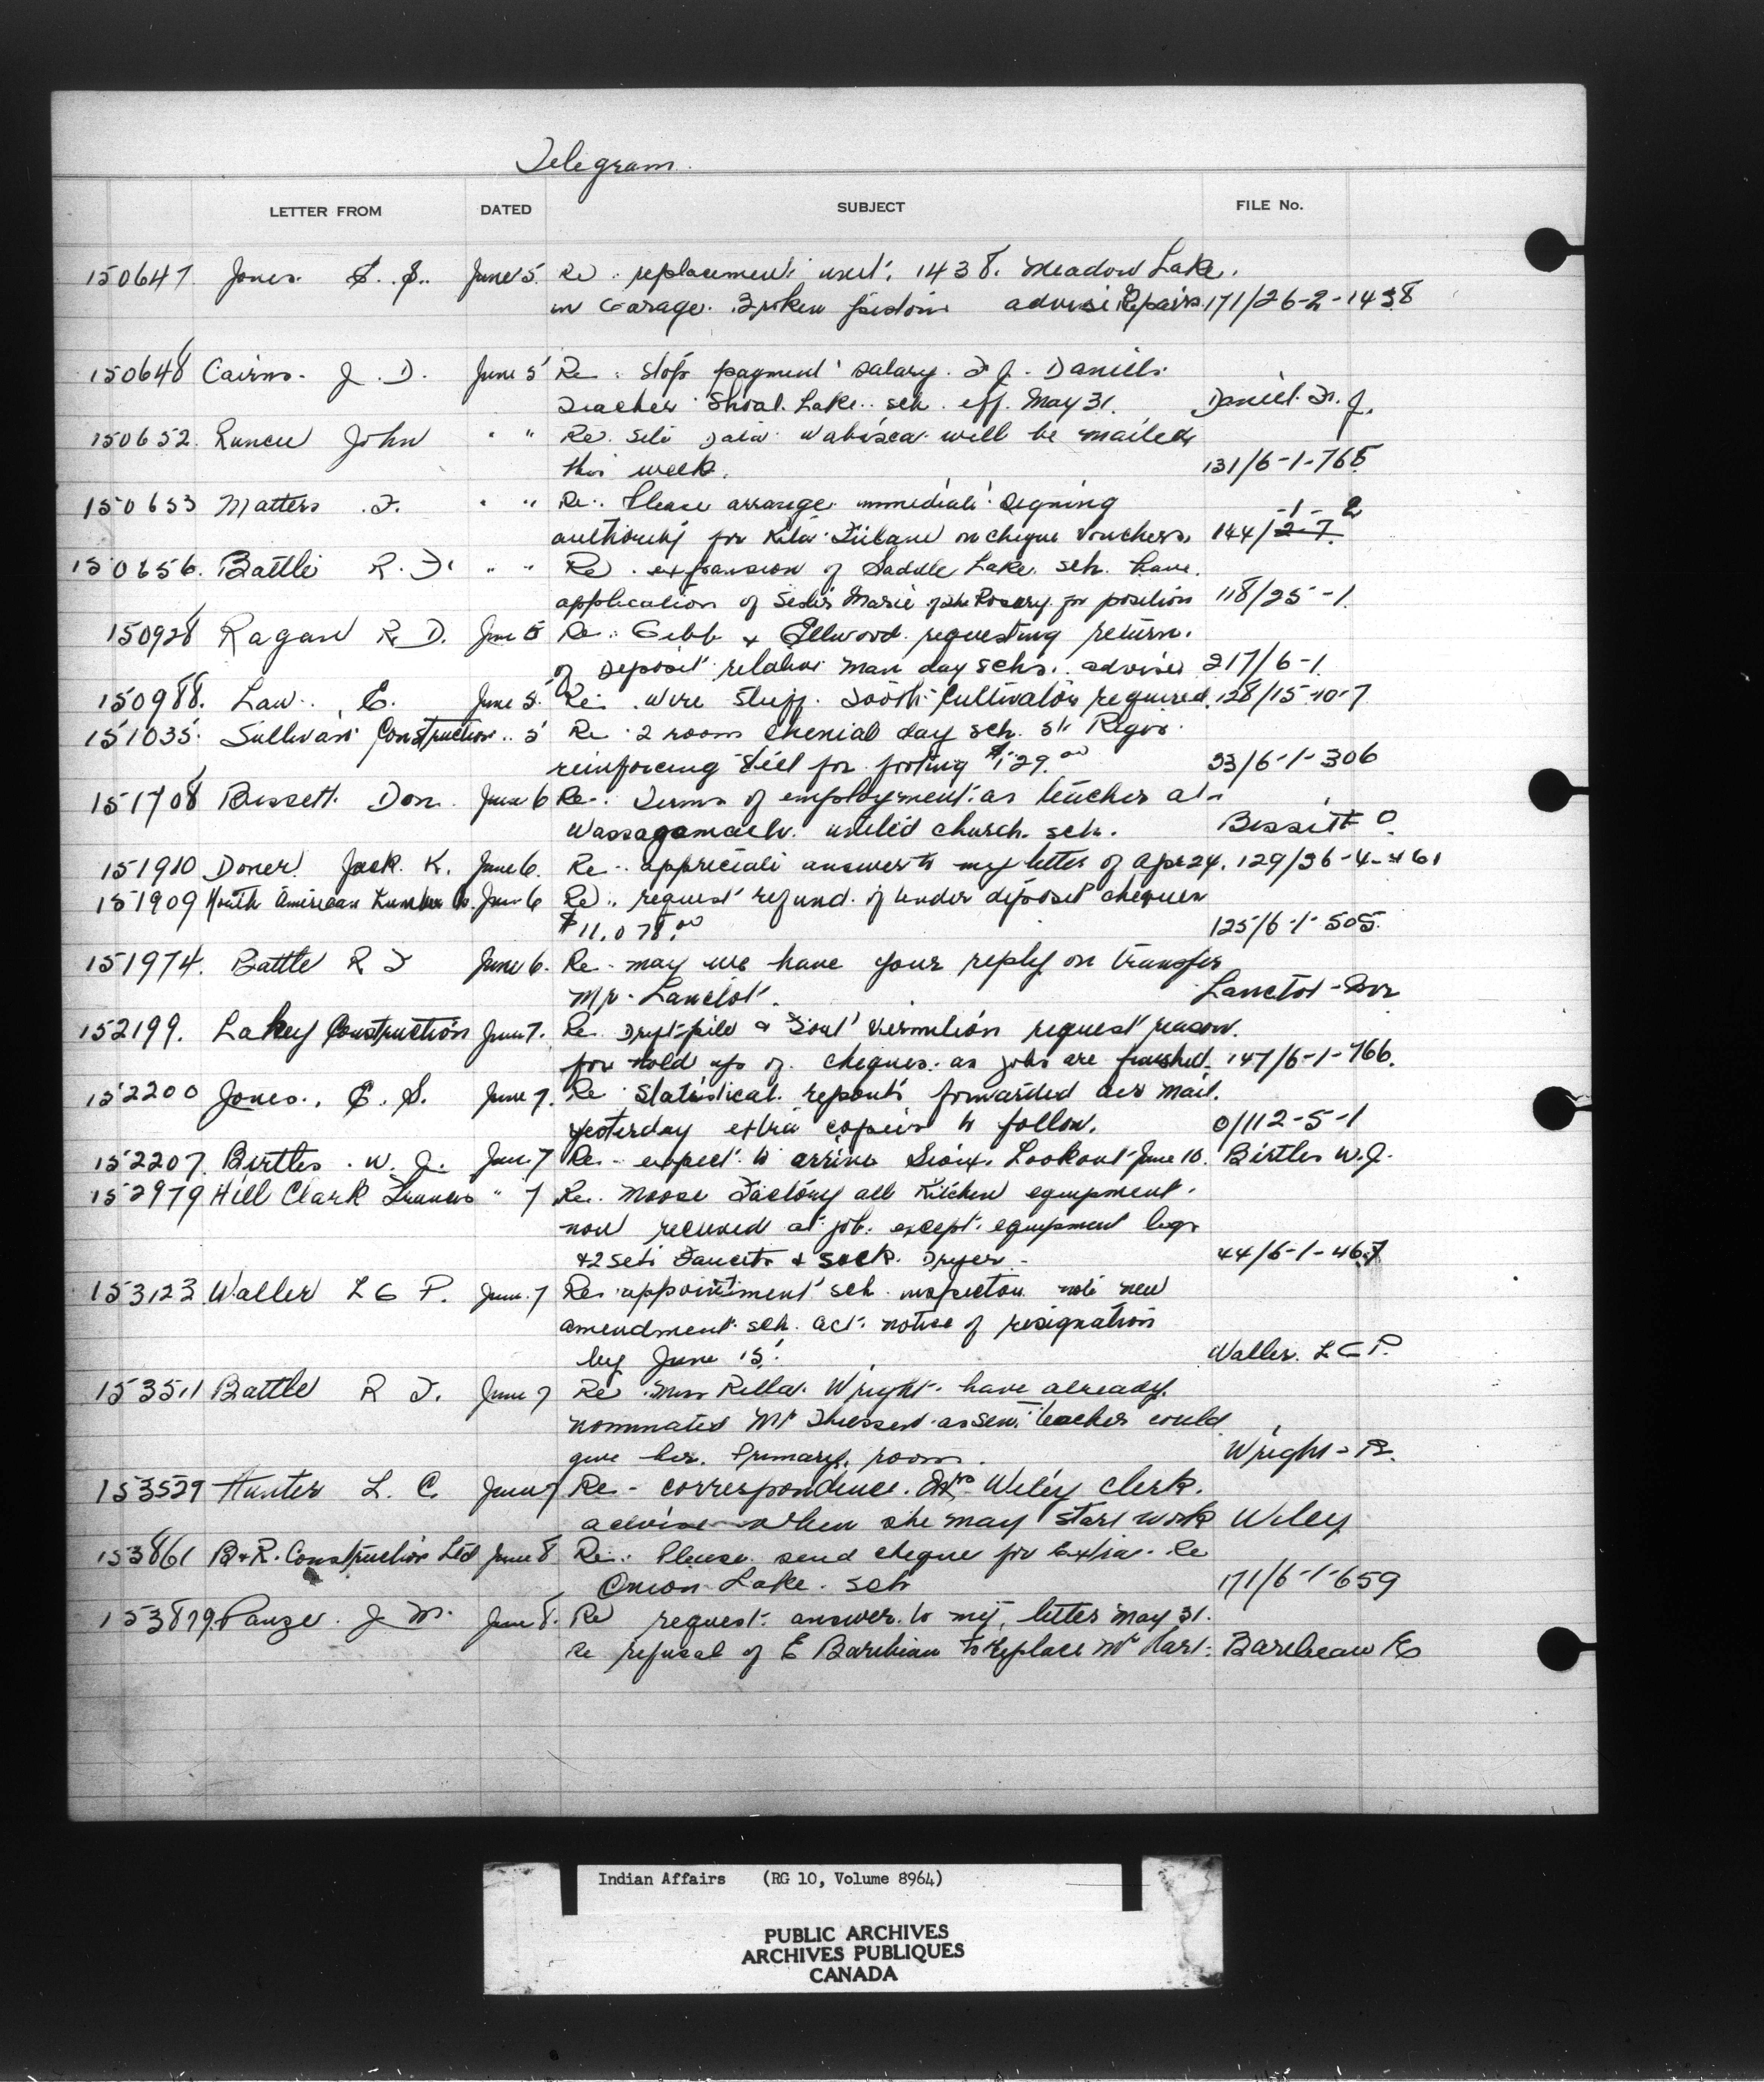 Telegram.
LETTER FROM DATED SUBJECT FILE No.
150647 Jones. E. S. June 5. Re: replacement unit. 1438. Meadow Lake.
in Garage. Broken pistons advise Repairs. 171/26-2-1438
150648 Cairns. J. D. June 5 Re: stop payment salary. F. J. Daniels.
Teacher Shoal Lake sch. eff. May 31. Daniel. F. J.
150652. John " " Re. Site Data Wabisca will be mailed
this week. 131/6-1-765
150653 Matters F. " " Re: Please arrange immediate signing -1- 2
authority for on cheque vouchers. 144/2-7
150656. Battle R. F. " " Re. expansion of Saddle Lake. sch. have.
application of Sister Marie of the Rosary for position 118/25-1
150928 Ragan R. D. June 5 Re: Gibb & Ellwood requesting return.
of deposit relative Man day schs. advise 217/6-1
150988. Law. E. June 5. Re. wire Stiff Tooth Cultivator required. 128/15-10-7
151035 Sullivan Construction.. 5 Re 2 room Chenial day sch. St Regis.
reinforcing steel for footing $129.00 33/6-1-306
151708 Bissett. Don. June 6 Re: Terms of employment as teacher at
Wassagamach. united church. sch. Bissett D.
151910 Doner. Jack. K. June 6. Re. appreciate answer to my letter of Apr 24. 129/36-4-161
151909 North American Lumber Co. June 6 Re. request refund of tender deposit cheques
$11,078.00 125/6-1-505.
151974. Battle R F June 6. Re. may we have your reply on transfer
Mr. Lanctot. Lanctot -
152199. Lakey Construction June 7. Re. Driftpile & Fort Vermilion request reason.
for hold up of cheques. as jobs are finished. 147/6-1-766.
152200 Jones., E. S. June 7. Re Statistical reports forwarded air mail.
yesterday extra copies to follow. 0/112-5-1
152207. Birtles. W. J. June 7 Re- expect to arrive Sioux Lookout June 10. Birtles W. J.
152979 Hill Clark Francis " 7 Re. Moose Factory all Kitchen equipment.
now received at job. except equipment legs
+2 sets Faucets & sock. Dryer. 44/6-1-467
153123 Waller L G P. June 7 Re. appointment sch. inspector note new
amendment sch. act. notice of resignation
by June 15. Waller. L G P.
153511 Battle R F. June 7 Re Miss Rella. Wright. have already.
nominated Mr Thiessen as sen. teacher could
give her. Primary. room. Wright - R.
153529 Hunter L. C. June 7 Re- correspondence. Mrs Wiley Clerk.
advise when she may start work Wiley
153861 B & R. Construction Ltd June 8 Re: Please send cheque for Extra. Re
Onion Lake. sch 171/6-1-659
153879. Panze. J M. June 8. Re request. answer to my letter May 31.
Re refusal of E Baribeau to replace Mr Hart. Baribeau E
Indian Affairs (RG 10, Volume 8964)
PUBLIC ARCHIVES
ARCHIVES PUBLIQUES
CANADA